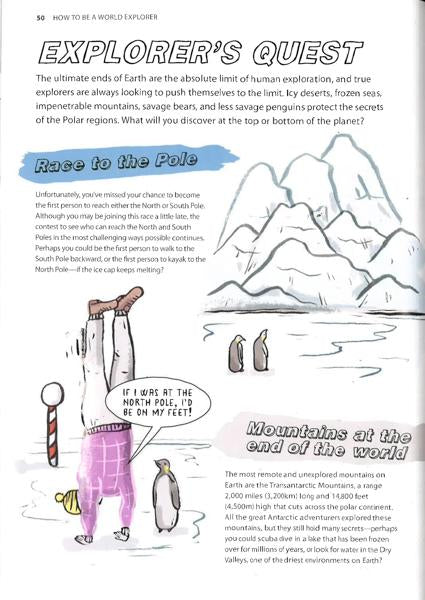 50 HOW TO BE A WORLD EXPLORER
EXPLORER'S QUEST
The ultimate ends of Earth are the absolute limit of human exploration, and true
explorers are always looking to push themselves to the limit. Icy deserts, frozen seas,
impenetrable mountains, savage bears, and less savage penguins protect the secrets
of the Polar regions. What will you discover at the top or bottom of the planet?
Race to the Pole
Unfortunately, you've missed your chance to become
the first person to reach either the North or South Pole.
Although you may be joining this race a little late, the
contest to see who can reach the North and South
Poles in the most challenging ways possible continues.
Perhaps you could be the first person to walk to the
South Pole backward, or the first person to kayak to the
North Pole—if the ice cap keeps melting?
IF I WAS AT THE
NORTH POLE, I'D
BE ON MY FEET!
Mountains at the
end of the world
The most remote and unexplored mountains on
Earth are the Transantarctic Mountains, a range
2,000 miles (3,200km) long and 14,800 feet
(4,500m) high that cuts across the polar continent.
All the great Antarctic adventurers explored these
mountains, but they still hold many secrets—perhaps
you could scuba dive in a lake that has been frozen
over for millions of years, or look for water in the Dry
Valleys, one of the driest environments on Earth?